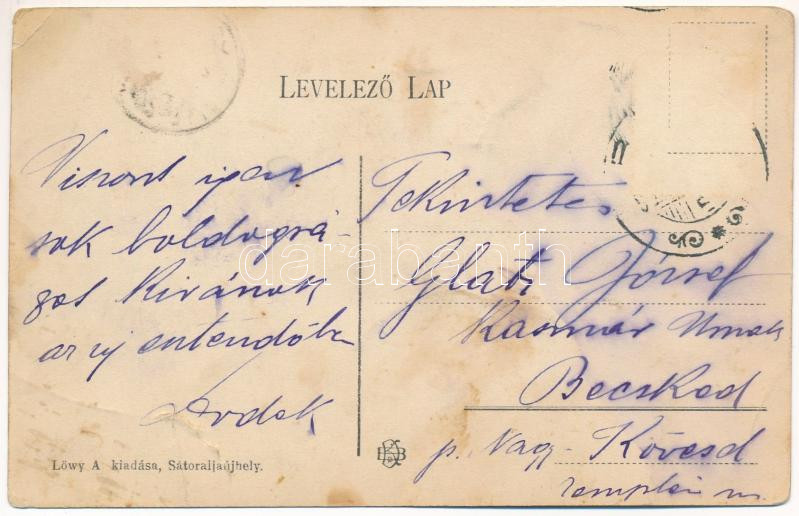 LEVELEZŐ LAP
Viszont igen
sok boldogsá-
got Kivánok
az uj esztendőbe
Tekintetes
Glatz József
Kasznár Urnak
Becsked
p. Nagy-Kövesd
Zemplén m.
Löwy A kiadása, Sátoraljaújhely.
darabanth